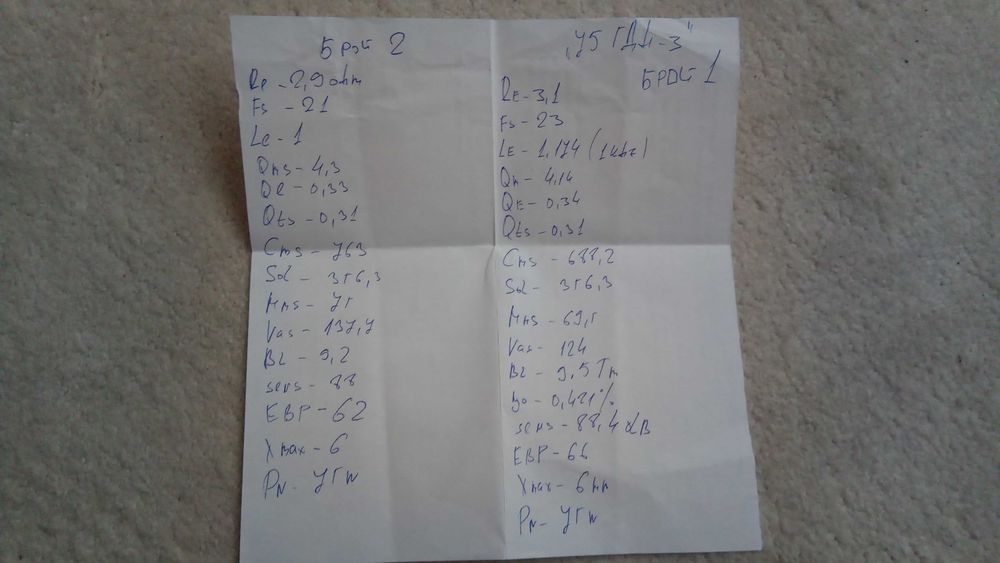 Брой 2
Re - 2,9 ohm
Fs - 21
Le - 1
Qms - 4,3
Qe - 0,33
Qts - 0,31
Cms - 763
Sd - 356,3
Mms - 75
Vas - 137,7
BL - 9,2
sens - 88
EBP - 62
Xmax - 6
Pn - 75w
„75 ГДН-3"
БРОЙ 1
RE - 3,1
Fs - 23
LE - 1,174 (1khz)
Qm - 4,14
QE - 0,34
Qts - 0,31
Cms - 688,2
Sd - 356,3
Mms - 69,5
Vas - 124
BL - 9,5 Tm
ηo - 0,421%
sens - 88,4 dB
EBP - 66
Xmax - 6mm
Pn - 75w